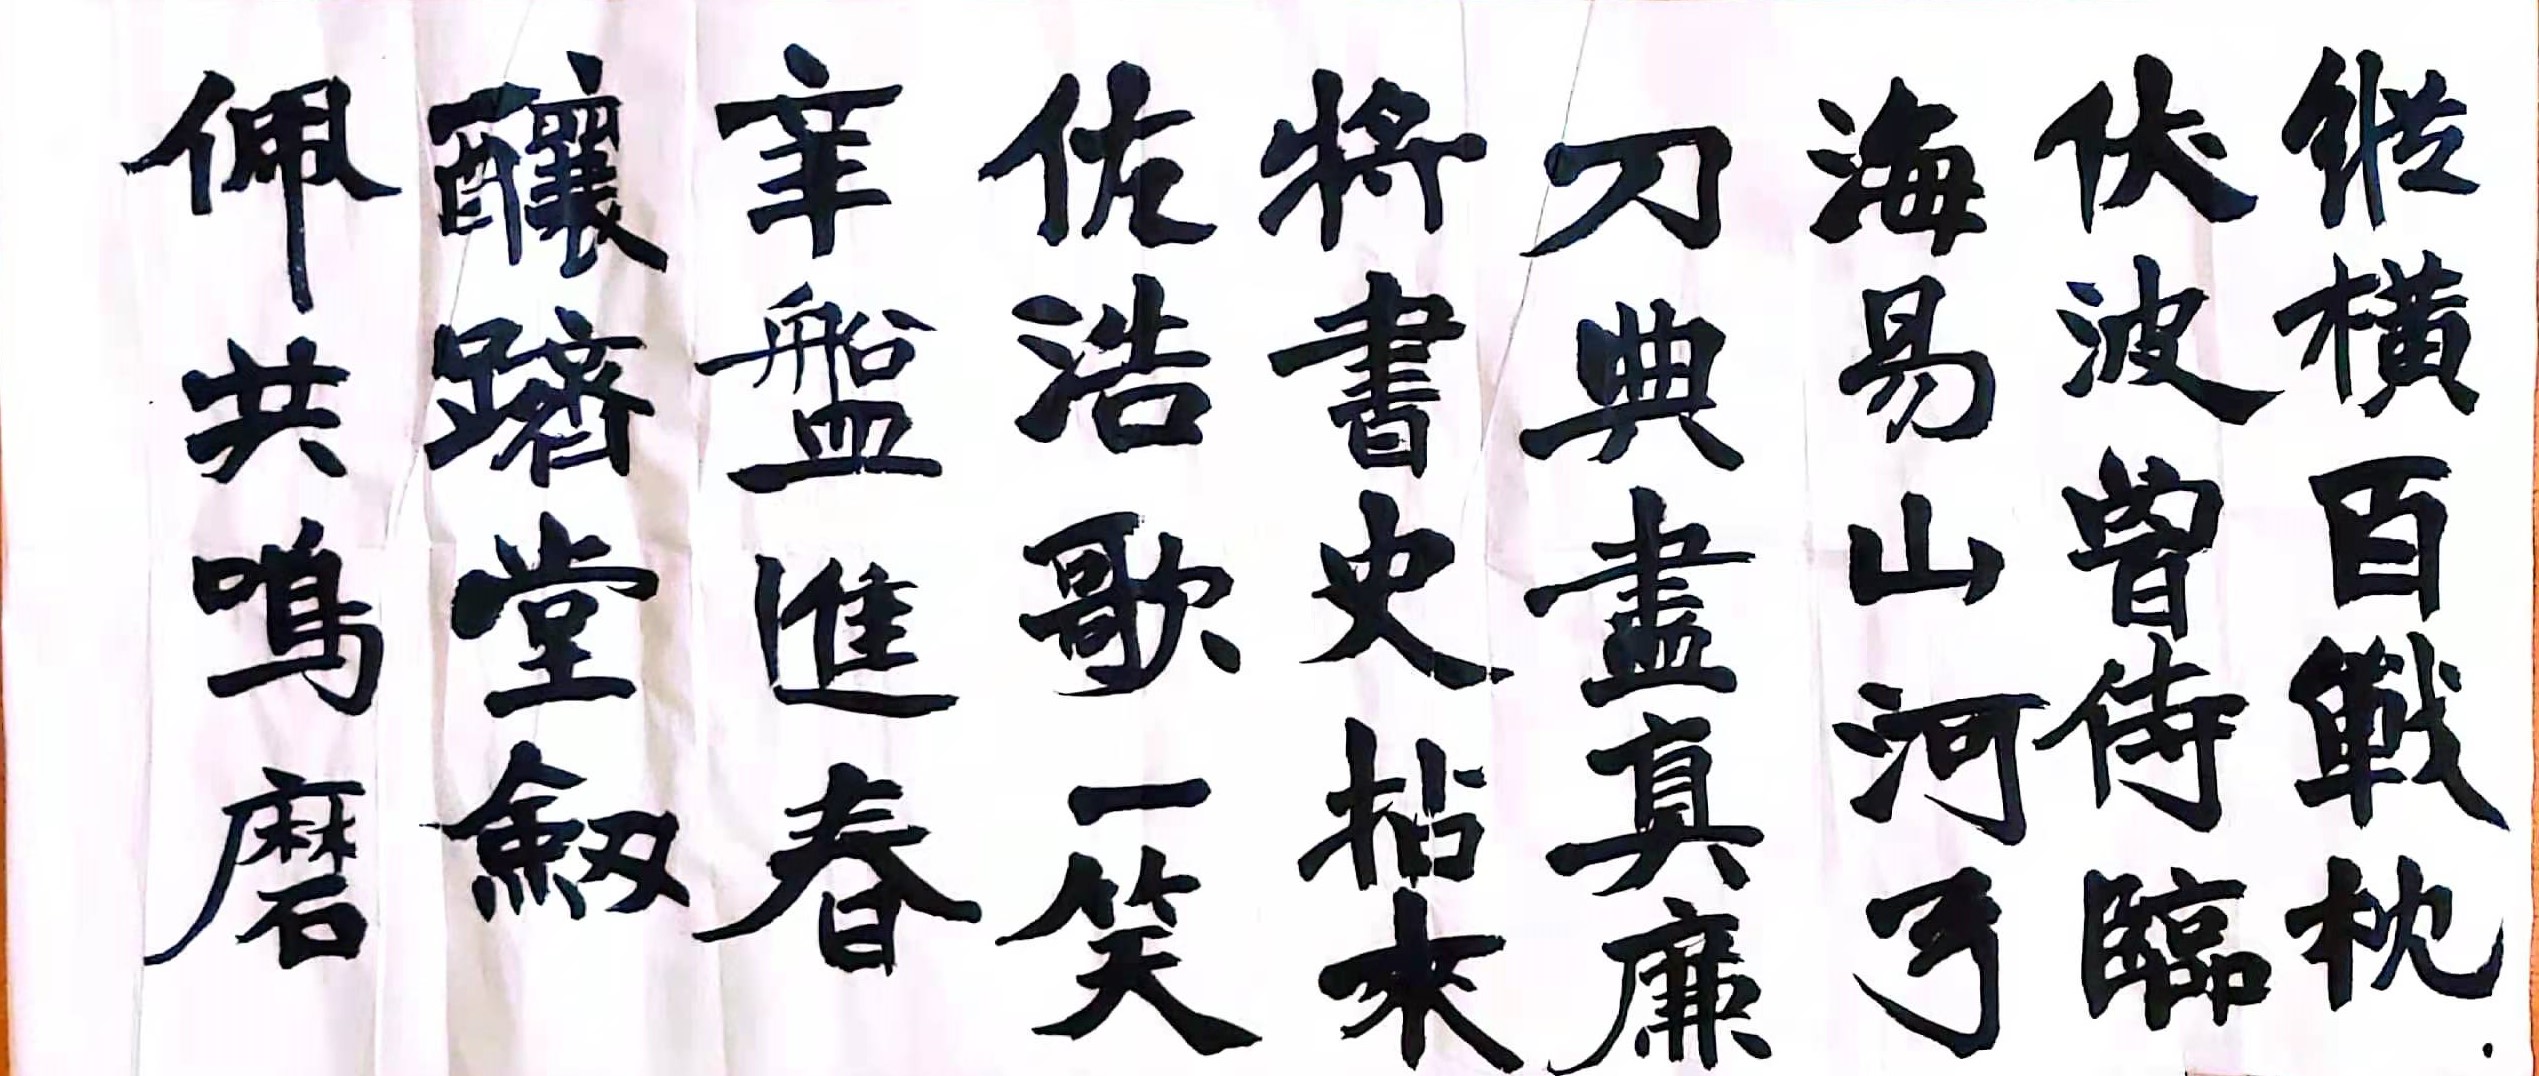 縱橫百戰枕
伏波曾侍臨
海易山河弓
刀典盡真廉
將書史拈來
佐浩歌一笑
辛盤進春
釀躋堂劔
佩共鳴磨